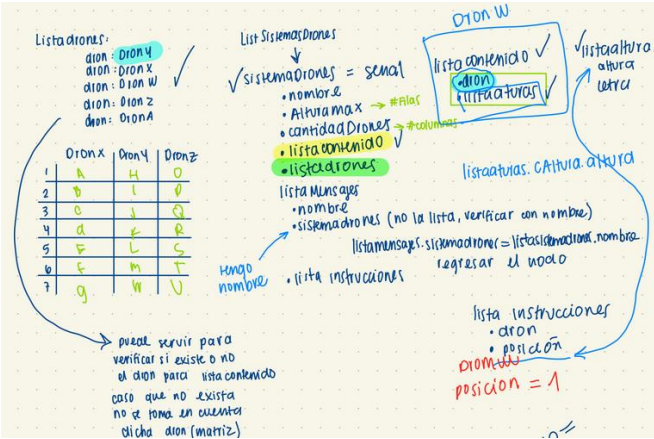 Listadrones:
dron: Dron Y
dron: Dron X
dron: Dron W
dron: Dron Z
dron: Dron A
Dron X Dron Y Dron Z
1 A H O
2 B I P
3 C J Q
4 d K R
5 E L S
6 F M T
7 g N U
puede servir para
verificar si existe o no
el dron para lista contenido
caso que no exista
no se toma en cuenta
dicha dron (matriz)
List SistemasDrones
sistemaDrones = senal
• nombre
• Alturamax → #filas
• cantidadDrones → #columnas
• listacontenido
• listadrones
lista Mensajes
• nombre
• sistemadrones (no la lista, verificar con nombre)
listamensajes.sistemadrones = listasistemadrones.nombre
regresar el nodo
tengo
nombre
• lista instrucciones
Dron W
lista contenido
• dron
• listaalturas
listaaltura
altura
letra
listaaturas. CAltura. altura
lista instrucciones
• dron
• posición
Dron W
posicion = 1